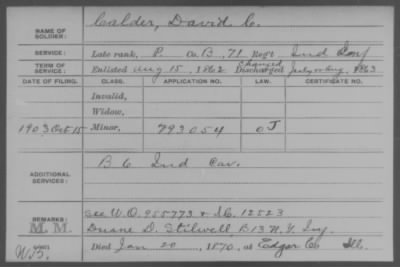 Calder, David C.
NAME OF SOLDIER:
SERVICE: Late rank, P Co. B. 71 Reg't Ind Inf
TERM OF SERVICE: Enlisted Aug 15, 1862 Changed Discharged July or Aug, 1863
DATE OF FILING. CLASS. APPLICATION NO. LAW. CERTIFICATE NO.
Invalid,
Widow,
1903 Oct 15 Minor, 793054 OJ
B 6 Ind Cav.
ADDITIONAL SERVICES:
See W.O. 955773 & 12523
REMARKS: Duane D. Stilwell, B 13 N.Y. Inf
M. M.
Died Jan 20, 1870, at Edgar Co Ill.